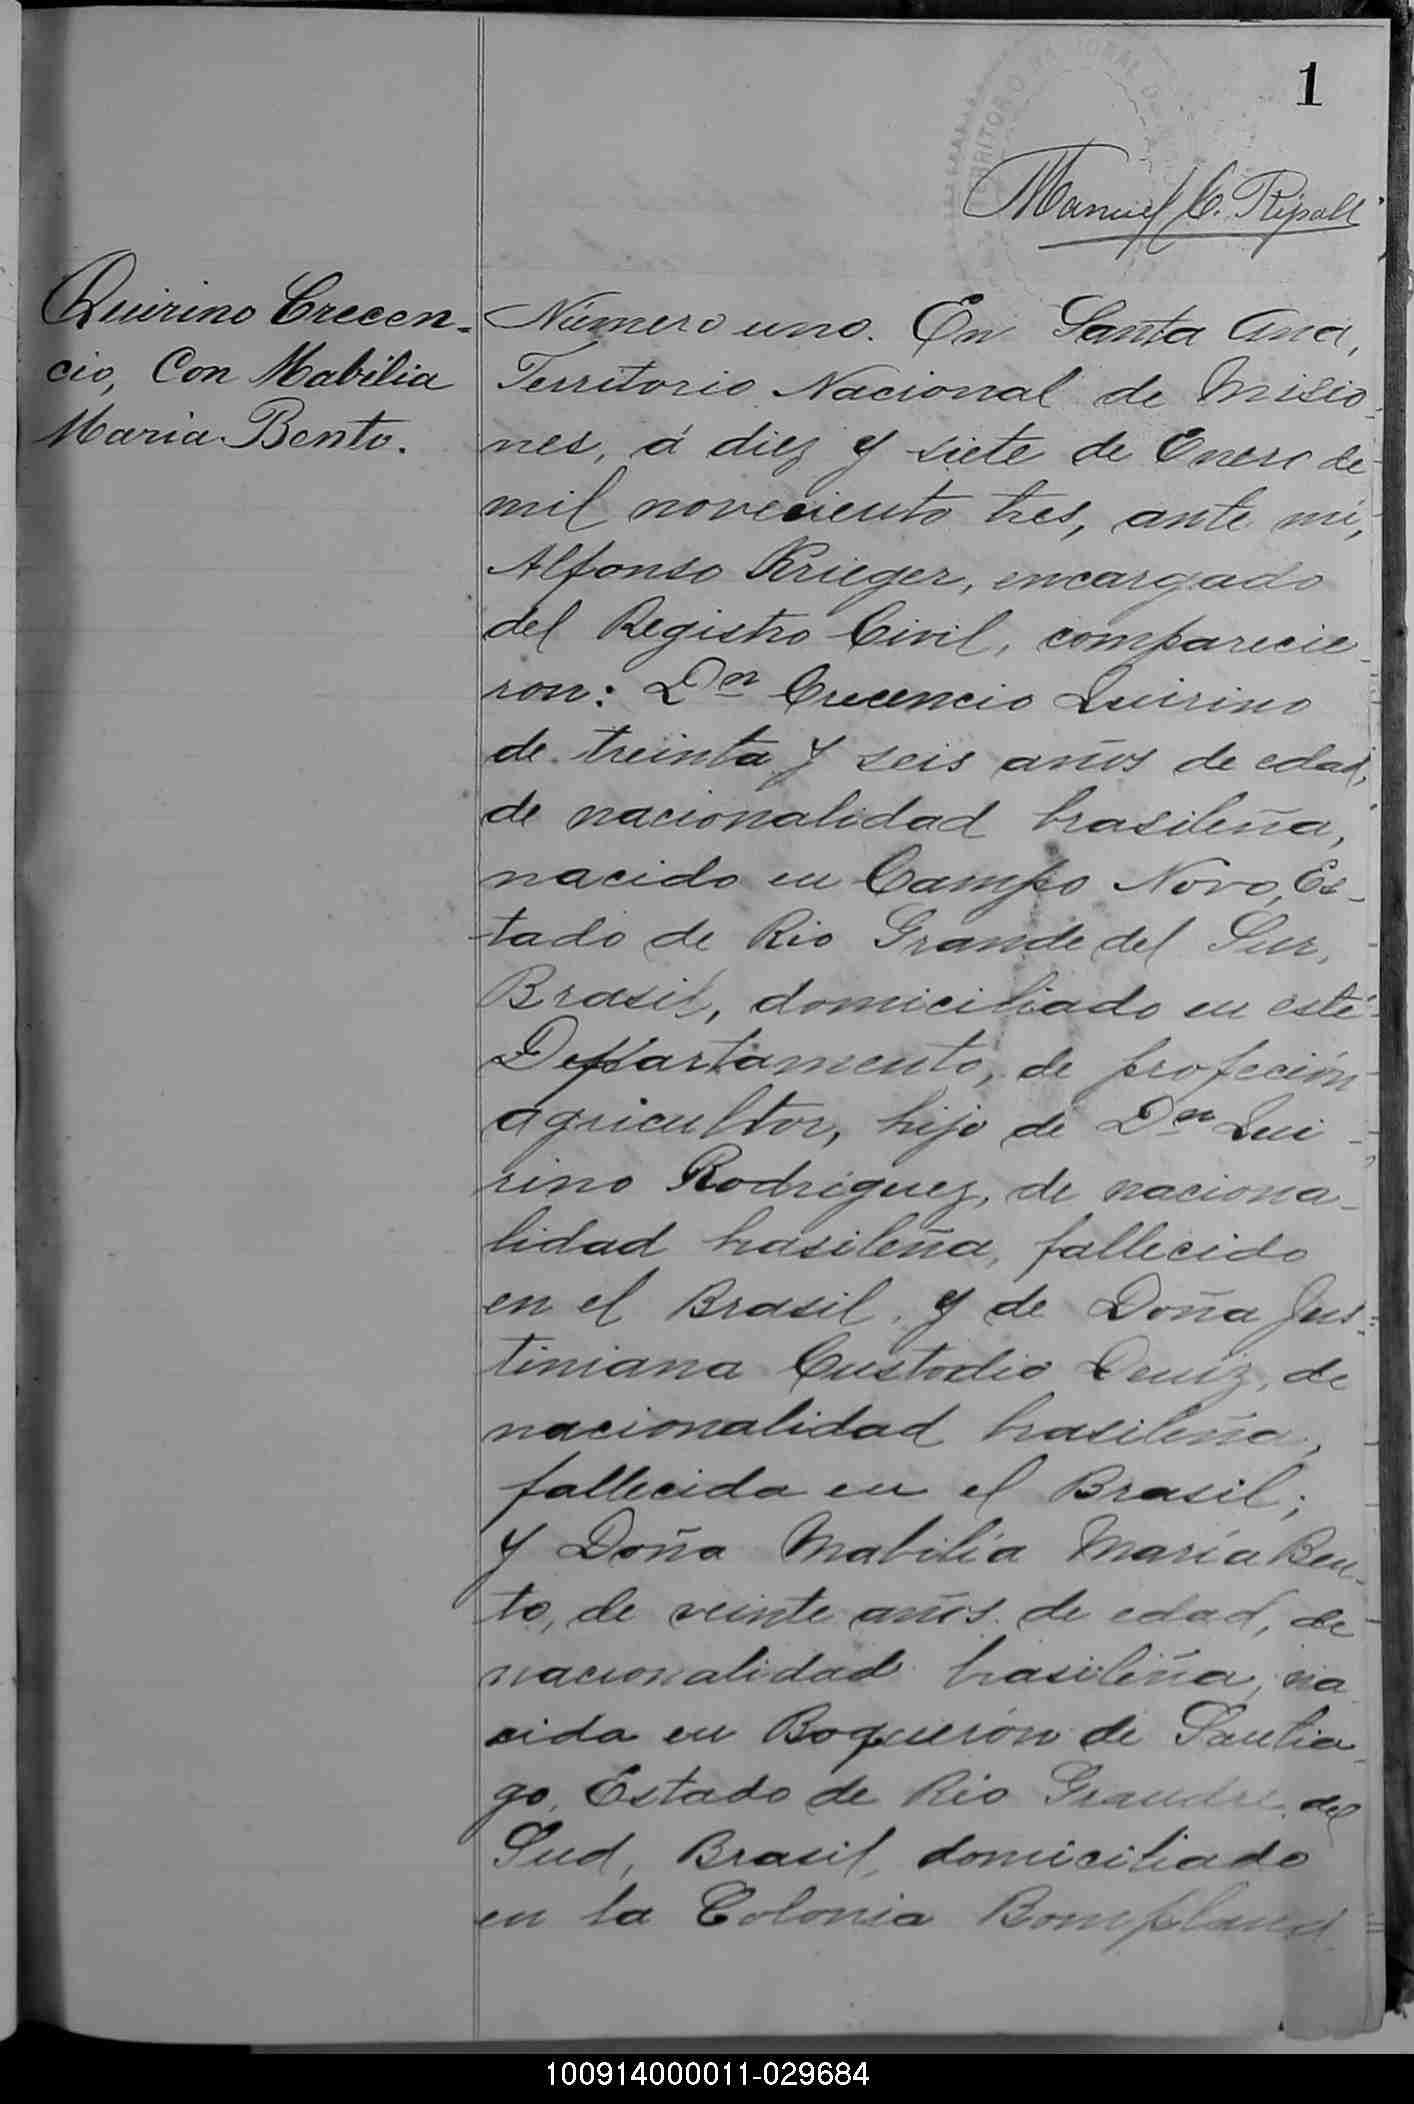 1
Manuel C. Ripoll
Quirino Crecen-
cio, Con Mabilia
Maria Bento.
Número uno. En Santa Ana,
Territorio Nacional de Misio-
nes, á diez y siete de Enero de
mil noveciento tres, ante mi,
Alfonso Krieger, encargado
del Registro Civil, comparecie-
ron: Dn Crecencio Quirino
de treinta y seis años de edad,
de nacionalidad brasileña,
nacido en Campo Novo, Es-
tado de Rio Grande del Sur,
Brasil, domiciliado en este
Departamento, de profeción
agricultor, hijo de Dn Qui-
rino Rodriguez, de naciona-
lidad brasileña, fallecido
en el Brasil, y de Doña Jus-
tiniana Custodio Deniz, de
nacionalidad brasileña,
fallecida en el Brasil;
y Doña Mabilia Maria Ben-
to, de veinte años de edad, de
nacionalidad brasileña, na-
cida en Boquerón de Santia-
go, Estado de Rio Grande del
Sud, Brasil, domiciliado
en la Colonia Bompland
100914000011-029684